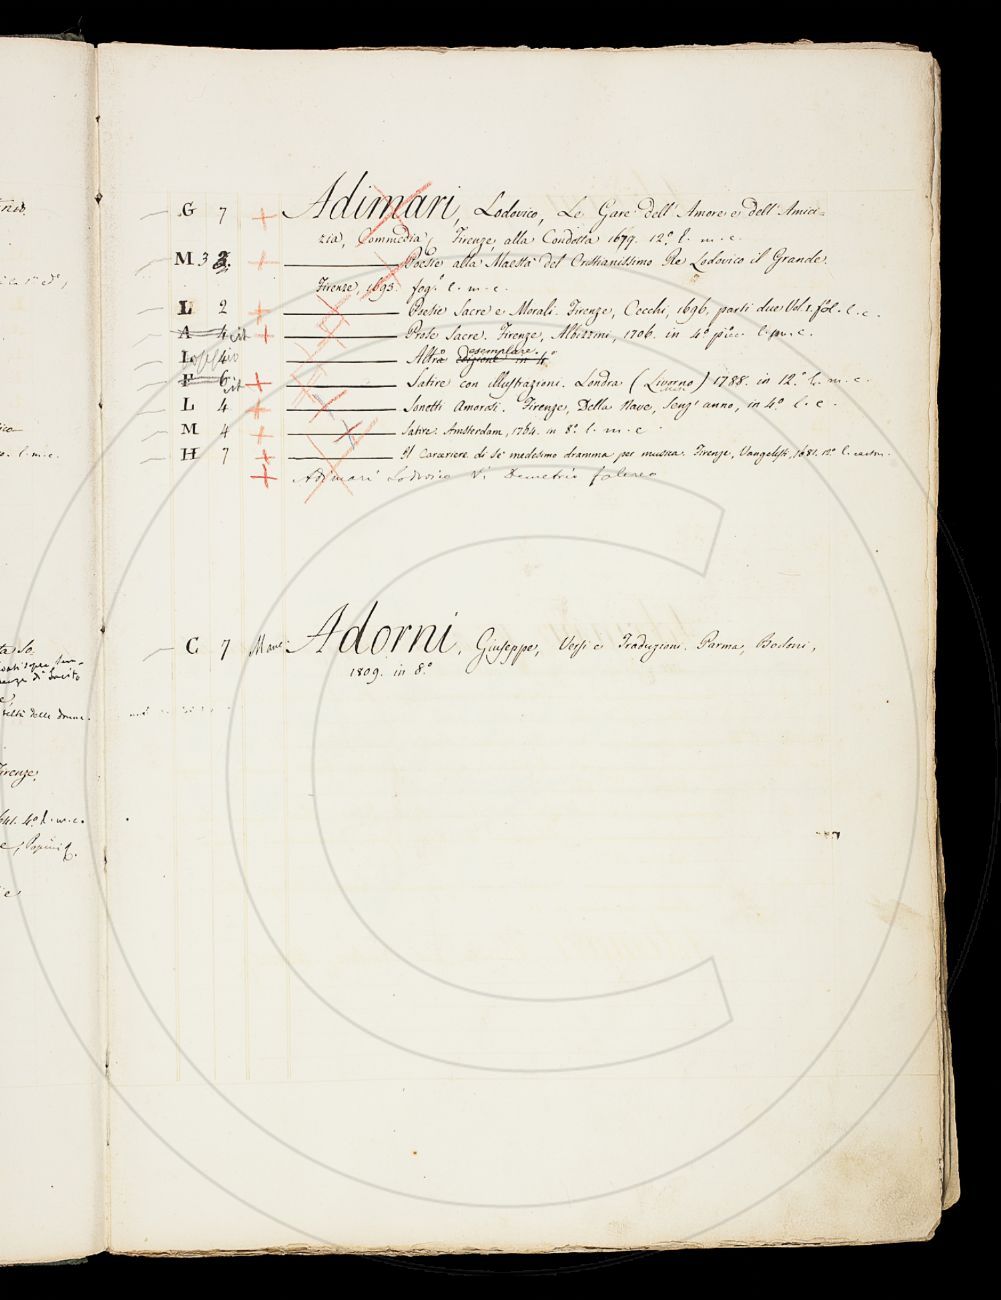 G 7 + Adimari, Lodovico, Le Gare dell' Amore e dell' Amici=
zia, Commedia, Firenze, alla Condotta 1679. 12.º l. m. c.
M 3 + Poesie alla Maestà del Cristianissimo Re Lodovico il Grande.
Firenze, 1693. fog.º l. m. c.
L 2 + Poesie Sacre e Morali. Firenze, Cecchi, 1696, parti due Vol. 1. fol. l. c.
A 4 + Prose Sacre. Firenze, Albizzini, 1706. in 4.º picc. l. m. c.
L 4 Altro esemplare.
edizione in 4º
F 6 + Satire con illustrazioni. Londra (Livorno) 1788. in 12.º l. m. c.
L 4 + Sonetti Amorosi. Firenze, Della Nave, senz' anno, in 4.º l. c.
M 4 + Satire. Amsterdam, 1764. in 8.º l. m. c.
H 7 + Il Carceriere di sé medesimo dramma per musica. Firenze, Vangelisti, 1681. 12.º l.
+ Adimari Lodovico V. Demetrio falereo
C 7 Adorni, Giuseppe, Versi e Traduzioni. Parma, Bodoni,
1809. in 8.º
Firenze,